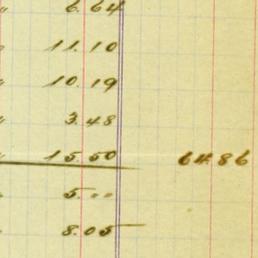 " 6.64
" 11.10
" 10.19
" 3.48
" 15.50 64.86
" 5."
" 8.05